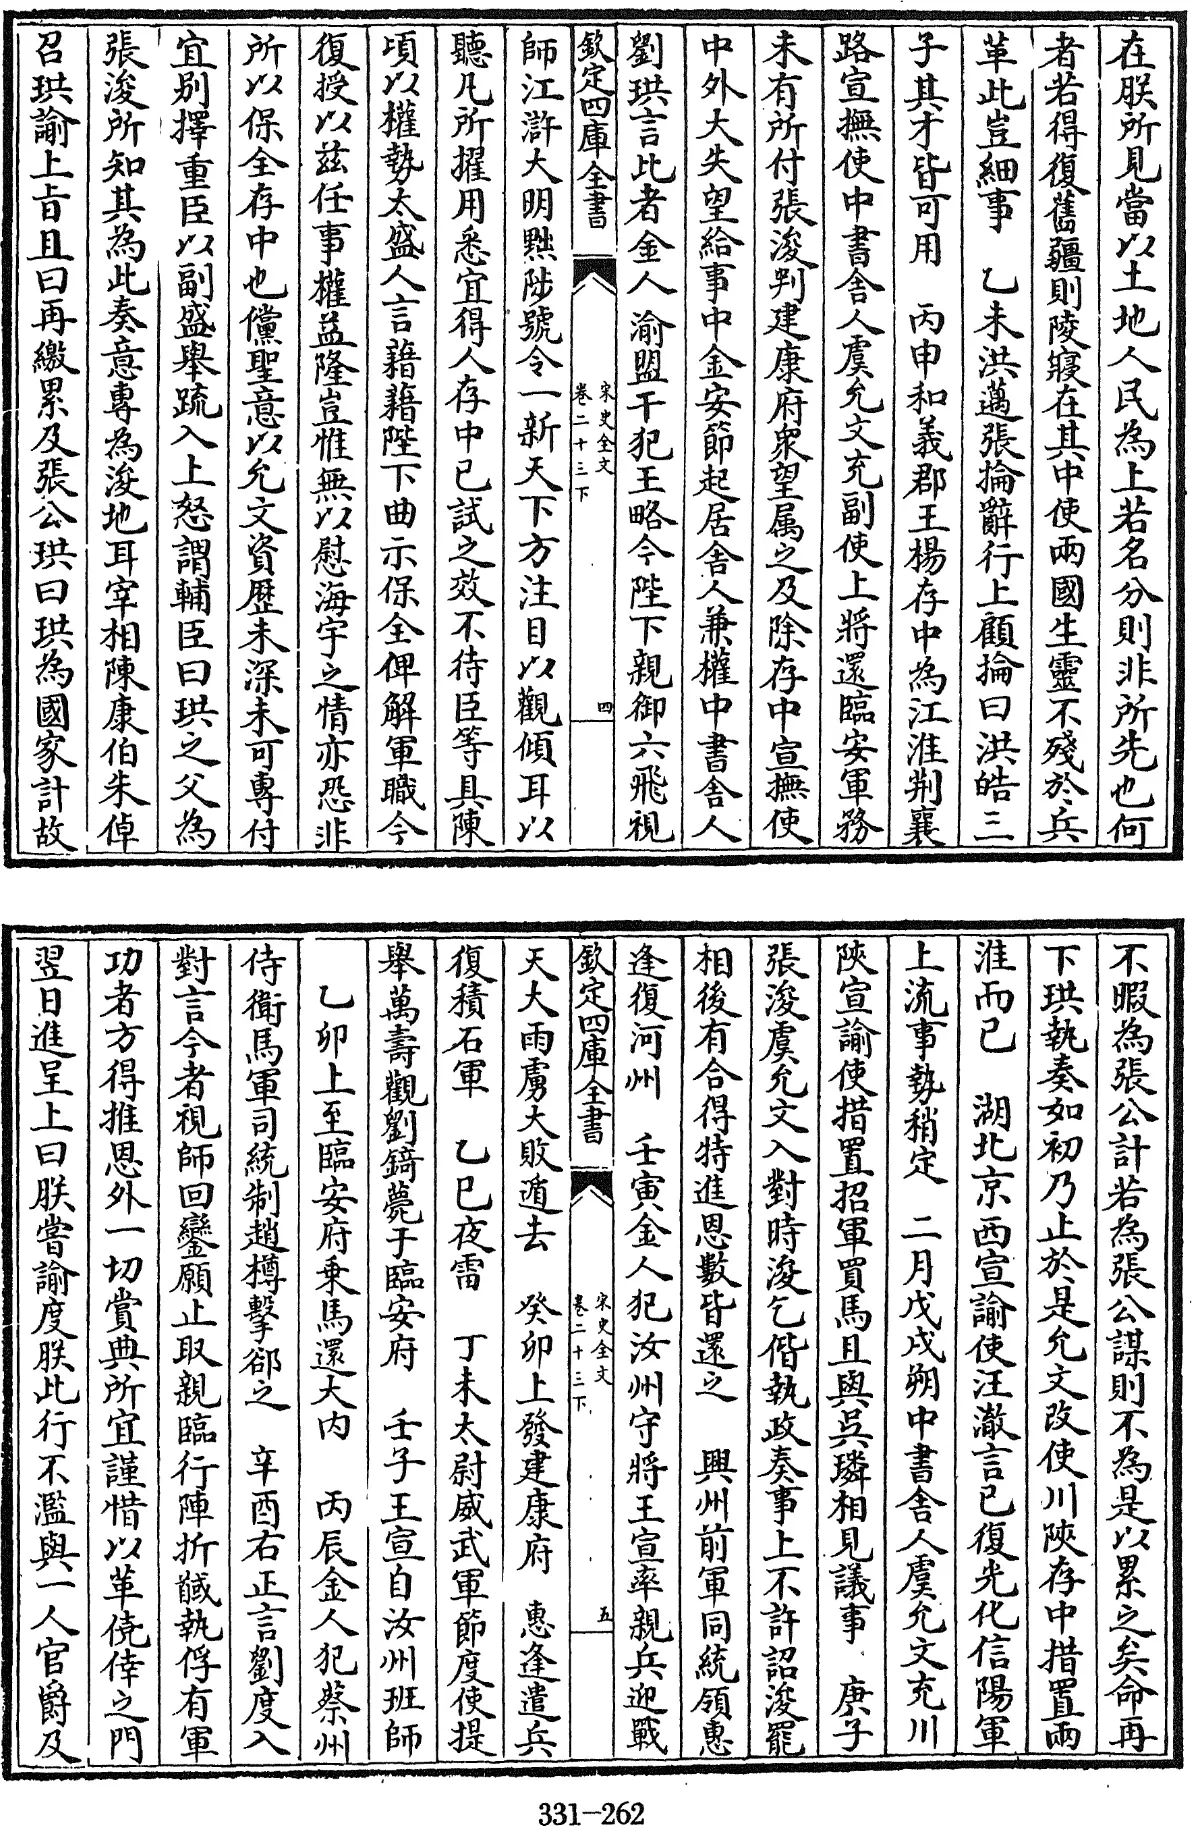 在朕所見當以土地人民為上若名分則非所先也何
者若得復舊疆則陵寢在其中使兩國生靈不殘於兵
革此豈細事　乙未洪邁張掄辭行上顧掄曰洪皓三
子其才皆可用　丙申和義郡王楊存中為江淮荆襄
路宣撫使中書舍人虞允文充副使上將還臨安軍務
未有所付張浚判建康府衆望属之及除存中宣撫使
中外大失望給事中金安節起居舍人兼權中書舍人
劉珙言比者金人渝盟干犯王略今陛下親御六飛視
欽定四庫全書
宋史全文
卷二十三下
四
師江滸大明黜陟號令一新天下方注目以觀傾耳以
聽凡所擢用悉宜得人存中已試之效不待臣等具陳
頃以權勢太盛人言藉藉陛下曲示保全俾解軍職今
復授以兹任事權益隆豈惟無以慰海宇之情亦恐非
所以保全存中也儻聖意以允文資歷未深未可專付
宜别擇重臣以副盛舉疏入上怒謂輔臣曰珙之父為
張浚所知其為此奏意專為浚地耳宰相陳康伯朱倬
召珙諭上旨且曰再繳累及張公珙曰珙為國家計故
不暇為張公計若為張公謀則不為是以累之矣命再
下珙執奏如初乃止於是允文改使川陜存中措置兩
淮而已　湖北京西宣諭使汪澈言已復光化信陽軍
上流事勢稍定　二月戊戌朔中書舍人虞允文充川
陜宣諭使措置招軍買馬且與吳璘相見議事　庚子
張浚虞允文入對時浚乞偕執政奏事上不許詔浚罷
相後有合得特進恩數皆還之　興州前軍同統領惠
逢復河州　壬寅金人犯汝州守將王宣率親兵迎戰
欽定四庫全書
宋史全文
卷二十三下
五
天大雨虜大敗遁去　癸卯上發建康府　惠逢遣兵
復積石軍　乙巳夜雷　丁未太尉威武軍節度使提
舉萬壽觀劉錡薨于臨安府　壬子王宣自汝州班師
乙卯上至臨安府乗馬還大内　丙辰金人犯蔡州
侍衛馬軍司統制趙樽擊郤之　辛酉右正言劉度入
對言今者視師回鑾願止取親臨行陣折馘執俘有軍
功者方得推恩外一切賞典所宜謹惜以革僥倖之門
翌日進呈上曰朕嘗諭度朕此行不濫與一人官爵及
331-262